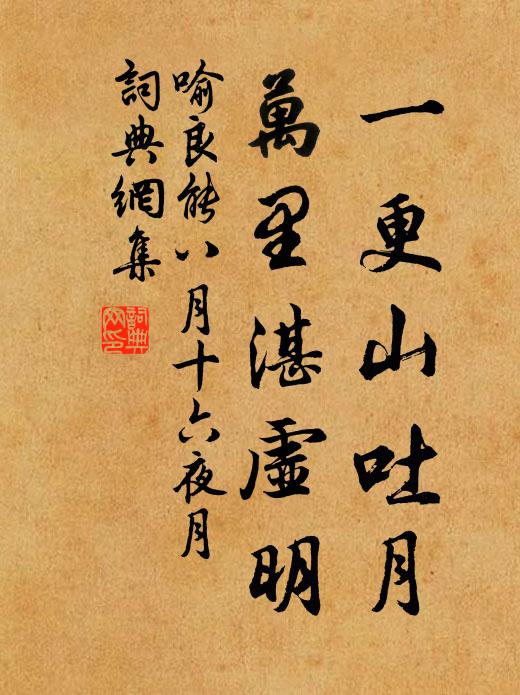 一更山吐月
萬里湛虛明
喻良能八月十六夜月
詞典網集
詞典網印